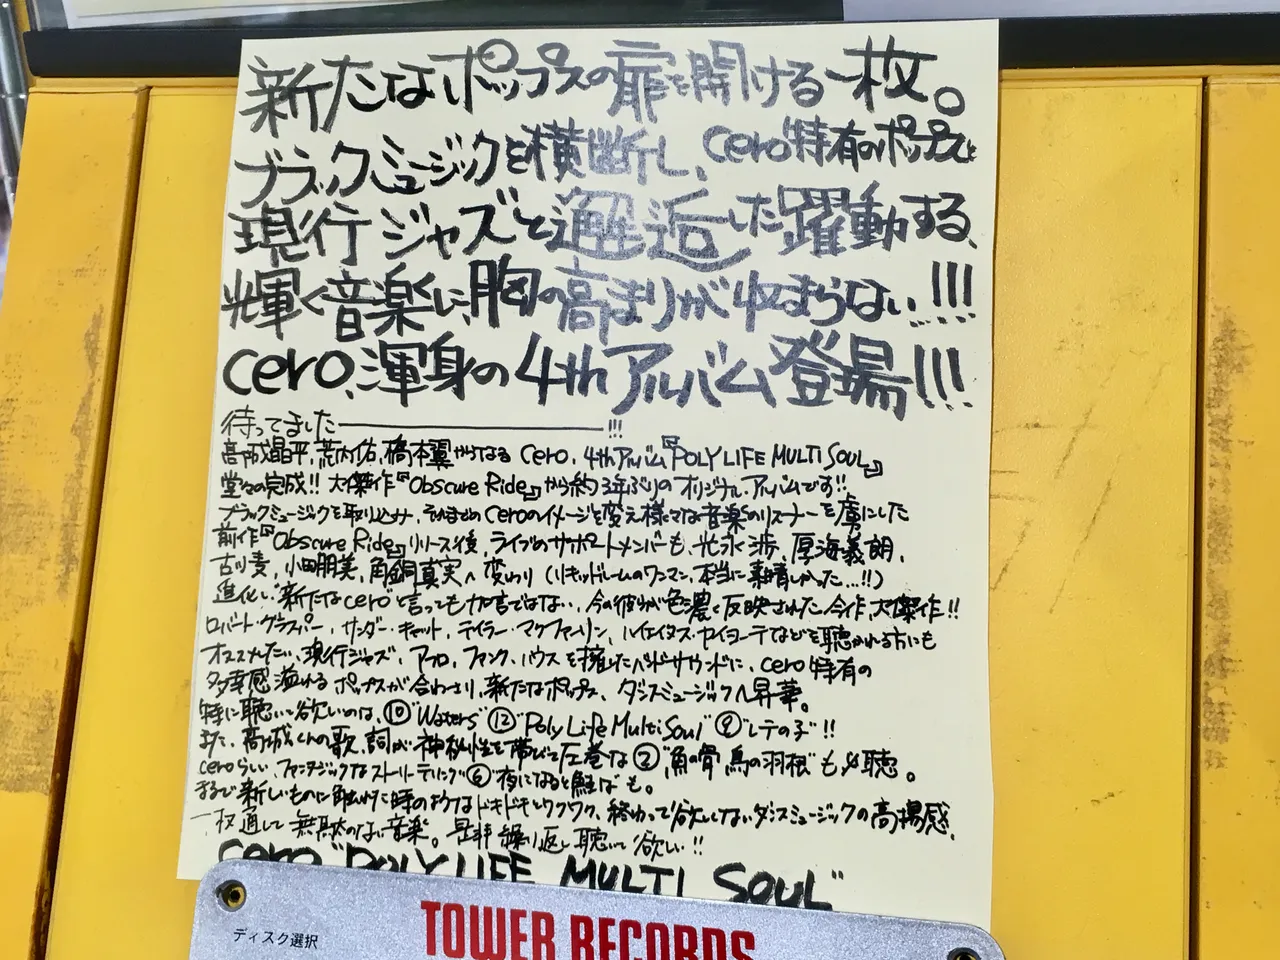 新たなポップスの扉を開ける一枚。
ブラックミュージックを横断し、cero特有のポップスと
現行ジャズと邂逅した躍動する、
輝く音楽に、胸の高まりが収まらない!!!
cero、渾身の4thアルバム登場!!!
待ってました―――!!!
髙城晶平、荒内佑、橋本翼からなるcero、4thアルバム『POLY LIFE MULTI SOUL』
堂々の完成!! 大傑作『Obscure Ride』から約3年ぶりのオリジナル・アルバムです!!
ブラックミュージックを取り込み、それまでのceroのイメージを変え様々な音楽のリスナーを虜にした
前作『Obscure Ride』リリース後、ライブのサポートメンバーも、光永渉、厚海義朗、
古川麦、小田朋美、角銅真実へ変わり(リキッドルームのワンマン、本当に素晴しかった…!!)
進化し"新たなcero"と言っても過言ではない、今の彼らが色濃く反映された今作、大傑作!!
ロバート・グラスパー、サンダー・キャット、テイラー・マクファーリン、ハイエイタス・カイヨーテなどを聴かれる方にも
オススメしたい、現行ジャズ、アフロ、ファンク、ハウスを擁したバンドサウンドに、cero特有の
多幸感溢れるポップスが合わさり、新たなポップス、ダンスミュージックへ昇華。
特に聴いて欲しいのは、⑩"Waters" ⑫"Poly Life Multi Soul" ⑨"レテの子"!!
また、髙城くんの歌、詞が神秘性を帯びて圧巻な②"魚の骨 鳥の羽根"も必聴。
ceroらしい、ファンタジックなストーリーテリング⑥"夜になると鮭は"も。
まるで新しいものに触れた時のようなドキドキとワクワク、終わって欲しくないダンスミュージックの高揚感、
一枚通して無駄のない音楽。是非繰り返し聴いて欲しい!!
cero "POLY LIFE MULTI SOUL"
ディスク選択
TOWER RECORDS